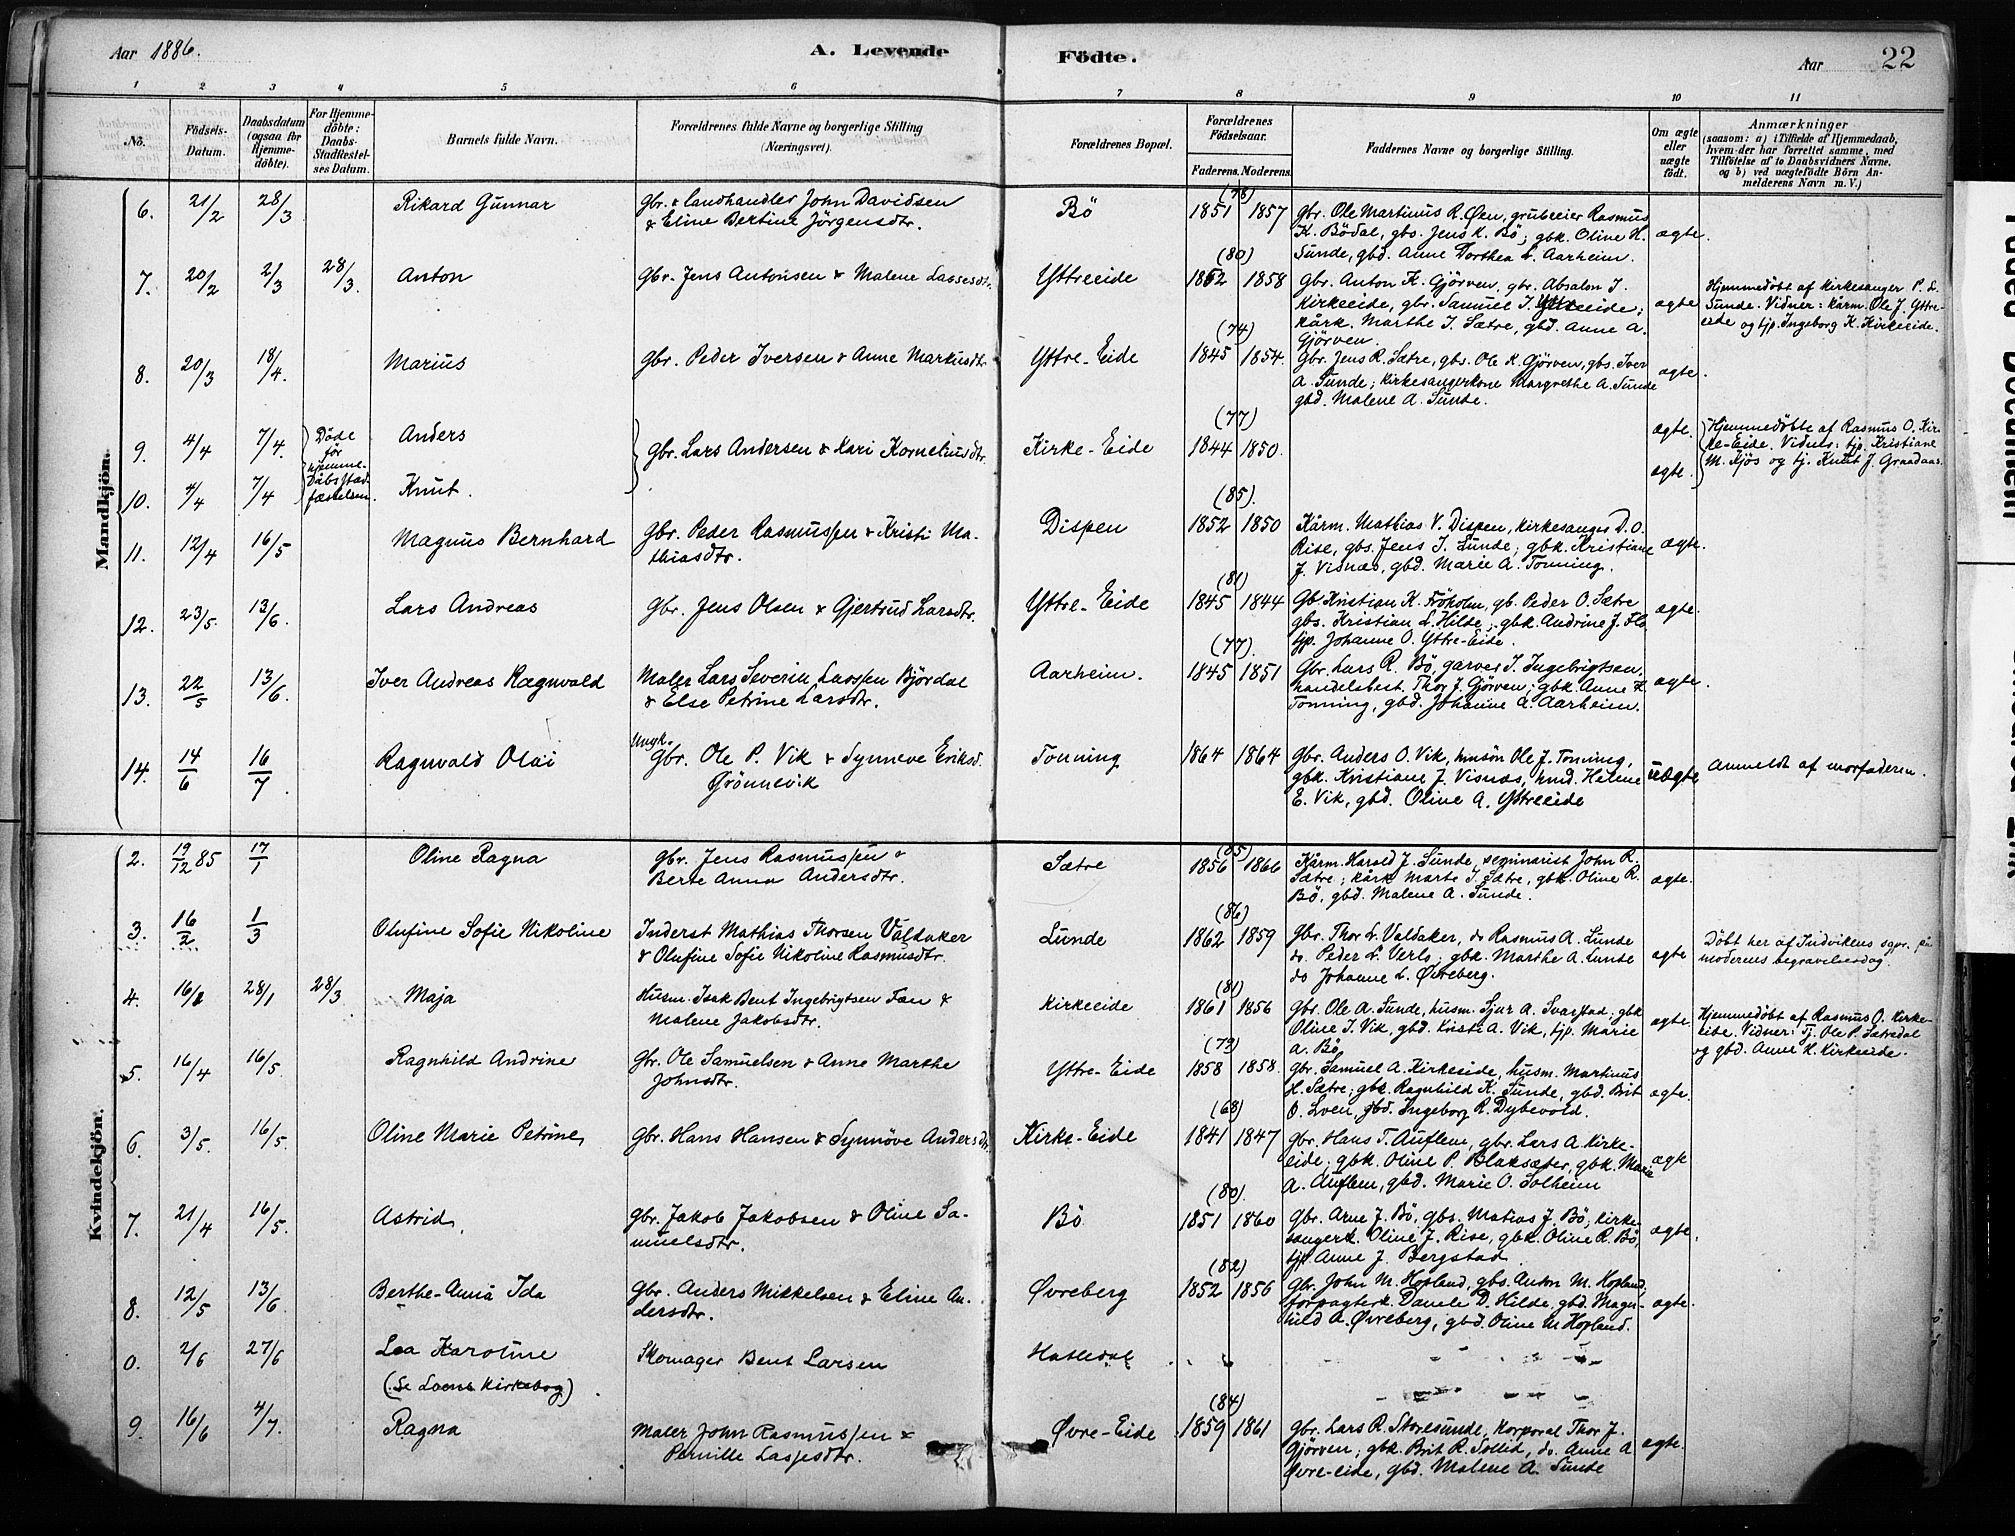 Aar 1886.
A. Levende
Fødte.
Aar
22
1 2 3 4 5 6 7 8 9 10 11
No.
Födsels-Datum.
Daabsdatum (ogsaa for Hjemme-döbte).
For Hjemme-döbte: Daabs-Stadfæstel-ses Datum.
Barnets fulde Navn.
Forældrenes fulde Navne og borgerlige Stilling (Næringsvei).
Forældrenes Bopæl.
Forældrenes Fødselsaar.
Faderens. Moderens.
Faddernes Navne og borgerlige Stilling.
Om ægte eller uægte født.
Anmærkninger
(saasom: a) i Tilfælde af Hjemmedaab, hvem der har forrettet samme, med Tilføielse af to Daabsvidners Navne, og b) ved uægtefødte Börn An-melderens Navn m. V.)
Mandkjön.
6. 21/2 28/3 Rikard Gunnar
gbr. & Landhandler John Davidsen
& Eline Bertine Jörgensdtr.
Bö (78) 1851 1857
gbr. Ole Martinus R. Øen, grubeeier Rasmus
K. Bödal, gbs. Jens K. Bö; gbk. Oline H.
Sunde, gbd. Anne Dorthea L. Aarheim.
ægte.
7. 20/2 2/3 28/3. Anton
Gbr. Jens Antonsen & Malene Lassesdtr.
Yttreeide (80) 1852 1858
Gbr. Anton K. Gjörven, gbr. Absalon J.
Kirkeeide, gbr. Samuel J. Yttreeide;
kårk. Marthe J. Sætre, gbd. Anne A.
Gjörven.
ægte
Hjemmedöbt af Kirkesanger P. L.
Sunde. Vidner: kårm. Ole J. Yttre-
eide og tjp. Ingeborg K. Kirkeeide.
8. 20/3 18/4. Marius
Gbr. Peder Iversen & Anne Markusdtr.
Yttre-Eide (74) 1845 1854.
Gbr. Jens R. Sætre, gbs. Ole K. Gjörven, gbs. Iver
A. Sunde; Kirkesangerkone Margrethe A. Sunde
gbd. Malene A. Sunde.
ægte.
9. 4/4 7/4. Döde för hjemme-daabsstad-fæstelsen. Anders
gbr. Lars Andersen & Kari Korneliusdtr.
Kirke-Eide (77) 1844 1850.
ægte.
Hjemmedöbte af Rasmus O. Kir-
ke-Eide. Vidner: tjp. Kristiane
M. Kjös og tj. Knut J. Graadaas
10. 4/4 7/4 Knut.
ægte.
11. 12/4 16/5 Magnus Bernhard
Gbr. Peder Rasmussen & Kristi Ma-
thiasdtr.
Dispen (85) 1852 1850
Kårm. Mathias V. Dispen, kirkesanger D. O.
Rise, gbs. Jens J. Lunde; gbk. Kristiane
J. Visnæs, gbd. Marie A. Tonning.
ægte.
12. 23/5. 13/6. Lars Andreas
Gbr. Jens Olsen & Gjertrud Larsdtr.
Yttre-Eide (81) 1845 1844
Gb. Kristian K. Fröholm, gb. Peder O. Sætre
gbs. Kristian L. Hilde; gbk. Andrine J. Flo.
tjp. Johanne O. Yttre-Eide.
ægte.
13. 22/5 13/6. Iver Andreas Ragnvald
Maler Lars Severin Larssen Björdal
& Else Petrine Larsdtr.
Aarheim. (77) 1845 1851
Gbr. Lars R. Bö, garver J. Ingebrigtsen,
handelsbest. Thor J. Gjörven; gbk. Anne K.
Tonning, gbd. Johanne A. Aarheim.
ægte.
14. 14/6 16/7. Ragnvald Olai
Ungk.
Gbr. Ole P. Vik & Synneve Eriksd.
Grönnevik
Tonning 1864 1864
Gbr. Anders O. Vik, hmsön Ole J. Tonning,
gbk. Kristiane J. Visnæs, hmd. Helene
E. Vik, gbd. Oline A. Yttreeide
uægte
Anmeldt af morfaderen.
Kvindekjön.
2. 19/12 85 17/1 Oline Ragna
gbr. Jens Rasmussen &
Berte Anna Andersdtr.
Sætre (85) 1856 1866
Kårm. Harald J. Sunde, seminarist John R.
Sætre; kårk. Marte J. Sætre, gbk. Oline R.
Bö, gbd. Malene A. Sunde.
ægte.
3. 16/2 1/3 Olufine Sofie Nikoline
Inderst Mathias Thorsen Valdaker
& Olufine Sofie Nikoline Rasmusdtr.
Lunde (86) 1862 1859
Gbr. Thor L. Valdaker, do Rasmus A. Lunde
do. Peder L. Verlo; gbk. Marthe A. Lunde
do Johanne L. Øvreberg.
ægte
Döbt her af Indvikens sgpr. på
moderens begravelsesdag.
4. 16/1 28/1 28/3 Maja
Husm. Isak Bent Ingebrigtsen Fan &
Malene Jakobsdtr.
Kirkeeide (81) 1861 1856
Gbr. Ole A. Sunde, husm. Sjur A. Svarstad, gbk
Oline J. Vik, gbd. Kristi A. Vik, tjp. Marie
A. Bö
ægte.
Hjemmedöbt af Rasmus O. Kirke-
eide. Vidner: Tj. Ole P. Sætredal
og gbd. Anne K. Kirkeeide.
5. 16/4 16/5. Ragnhild Andrine
Gbr. Ole Samuelsen & Anne Marthe
Johnsdtr.
Yttre-Eide (79) 1858 1858.
Gbr. Samuel A. Kirkeeide, husm. Martinus
H. Sætre; gbk. Ragnhild K. Sunde, gbd. Brit
O. Loen, gbd. Ingeborg R. Dybevold.
ægte.
6. 3/5. 16/5. Oline Marie Petrine
Gbr. Hans Hansen & Synnöve Andersdtr.
Kirke-Eide (68) 1841 1847
Gbr. Hans T. Auflem, gbr. Lars A. Kirke-
eide; gbk. Oline P. Blaksæter, gbk. Marie
A. Auflem, gbd. Marie O. Solheim
ægte
7. 21/4 16/5. Astrid
Gbr. Jakob Jakobsen & Oline Sa-
muelsdtr.
Bö (80). 1851 1860
Gbr. Arne J. Bö, gbs. Matias J. Bö, kirke-
sangerk. Oline J. Rise, gbk. Oline R. Bö,
tjp. Anne J. Bergstad.
ægte.
8. 12/5 13/6 Berthe-Anna Ida
Gbr. Anders Mikkelsen & Eline An-
dersdtr.
Øvreberg (82) 1852 1856
Gbr. John M. Hopland, gbs. Anton M. Hopland,
forpagterk. Danele D. Hilde, gbd. Magn-
hild A. Øvreberg, gbd. Oline M. Hopland.
ægte.
0. 2/6 27/6 Lea Karoline
(Se Loens Kirkebog)
Skomager Bent Larsen
Hatledal
9. 16/6 4/7. Ragna
Maler John Rasmussen &
Pernille Lassesdtr.
Øvre-Eide (84) 1859 1861
Gbr. Lars R. Storesunde, Korporal Thor J.
Gjörven; gbk. Brit R. Sollid, do. Anne A.
Øvre-eide, gbd. Malene A. Sunde
ægte.